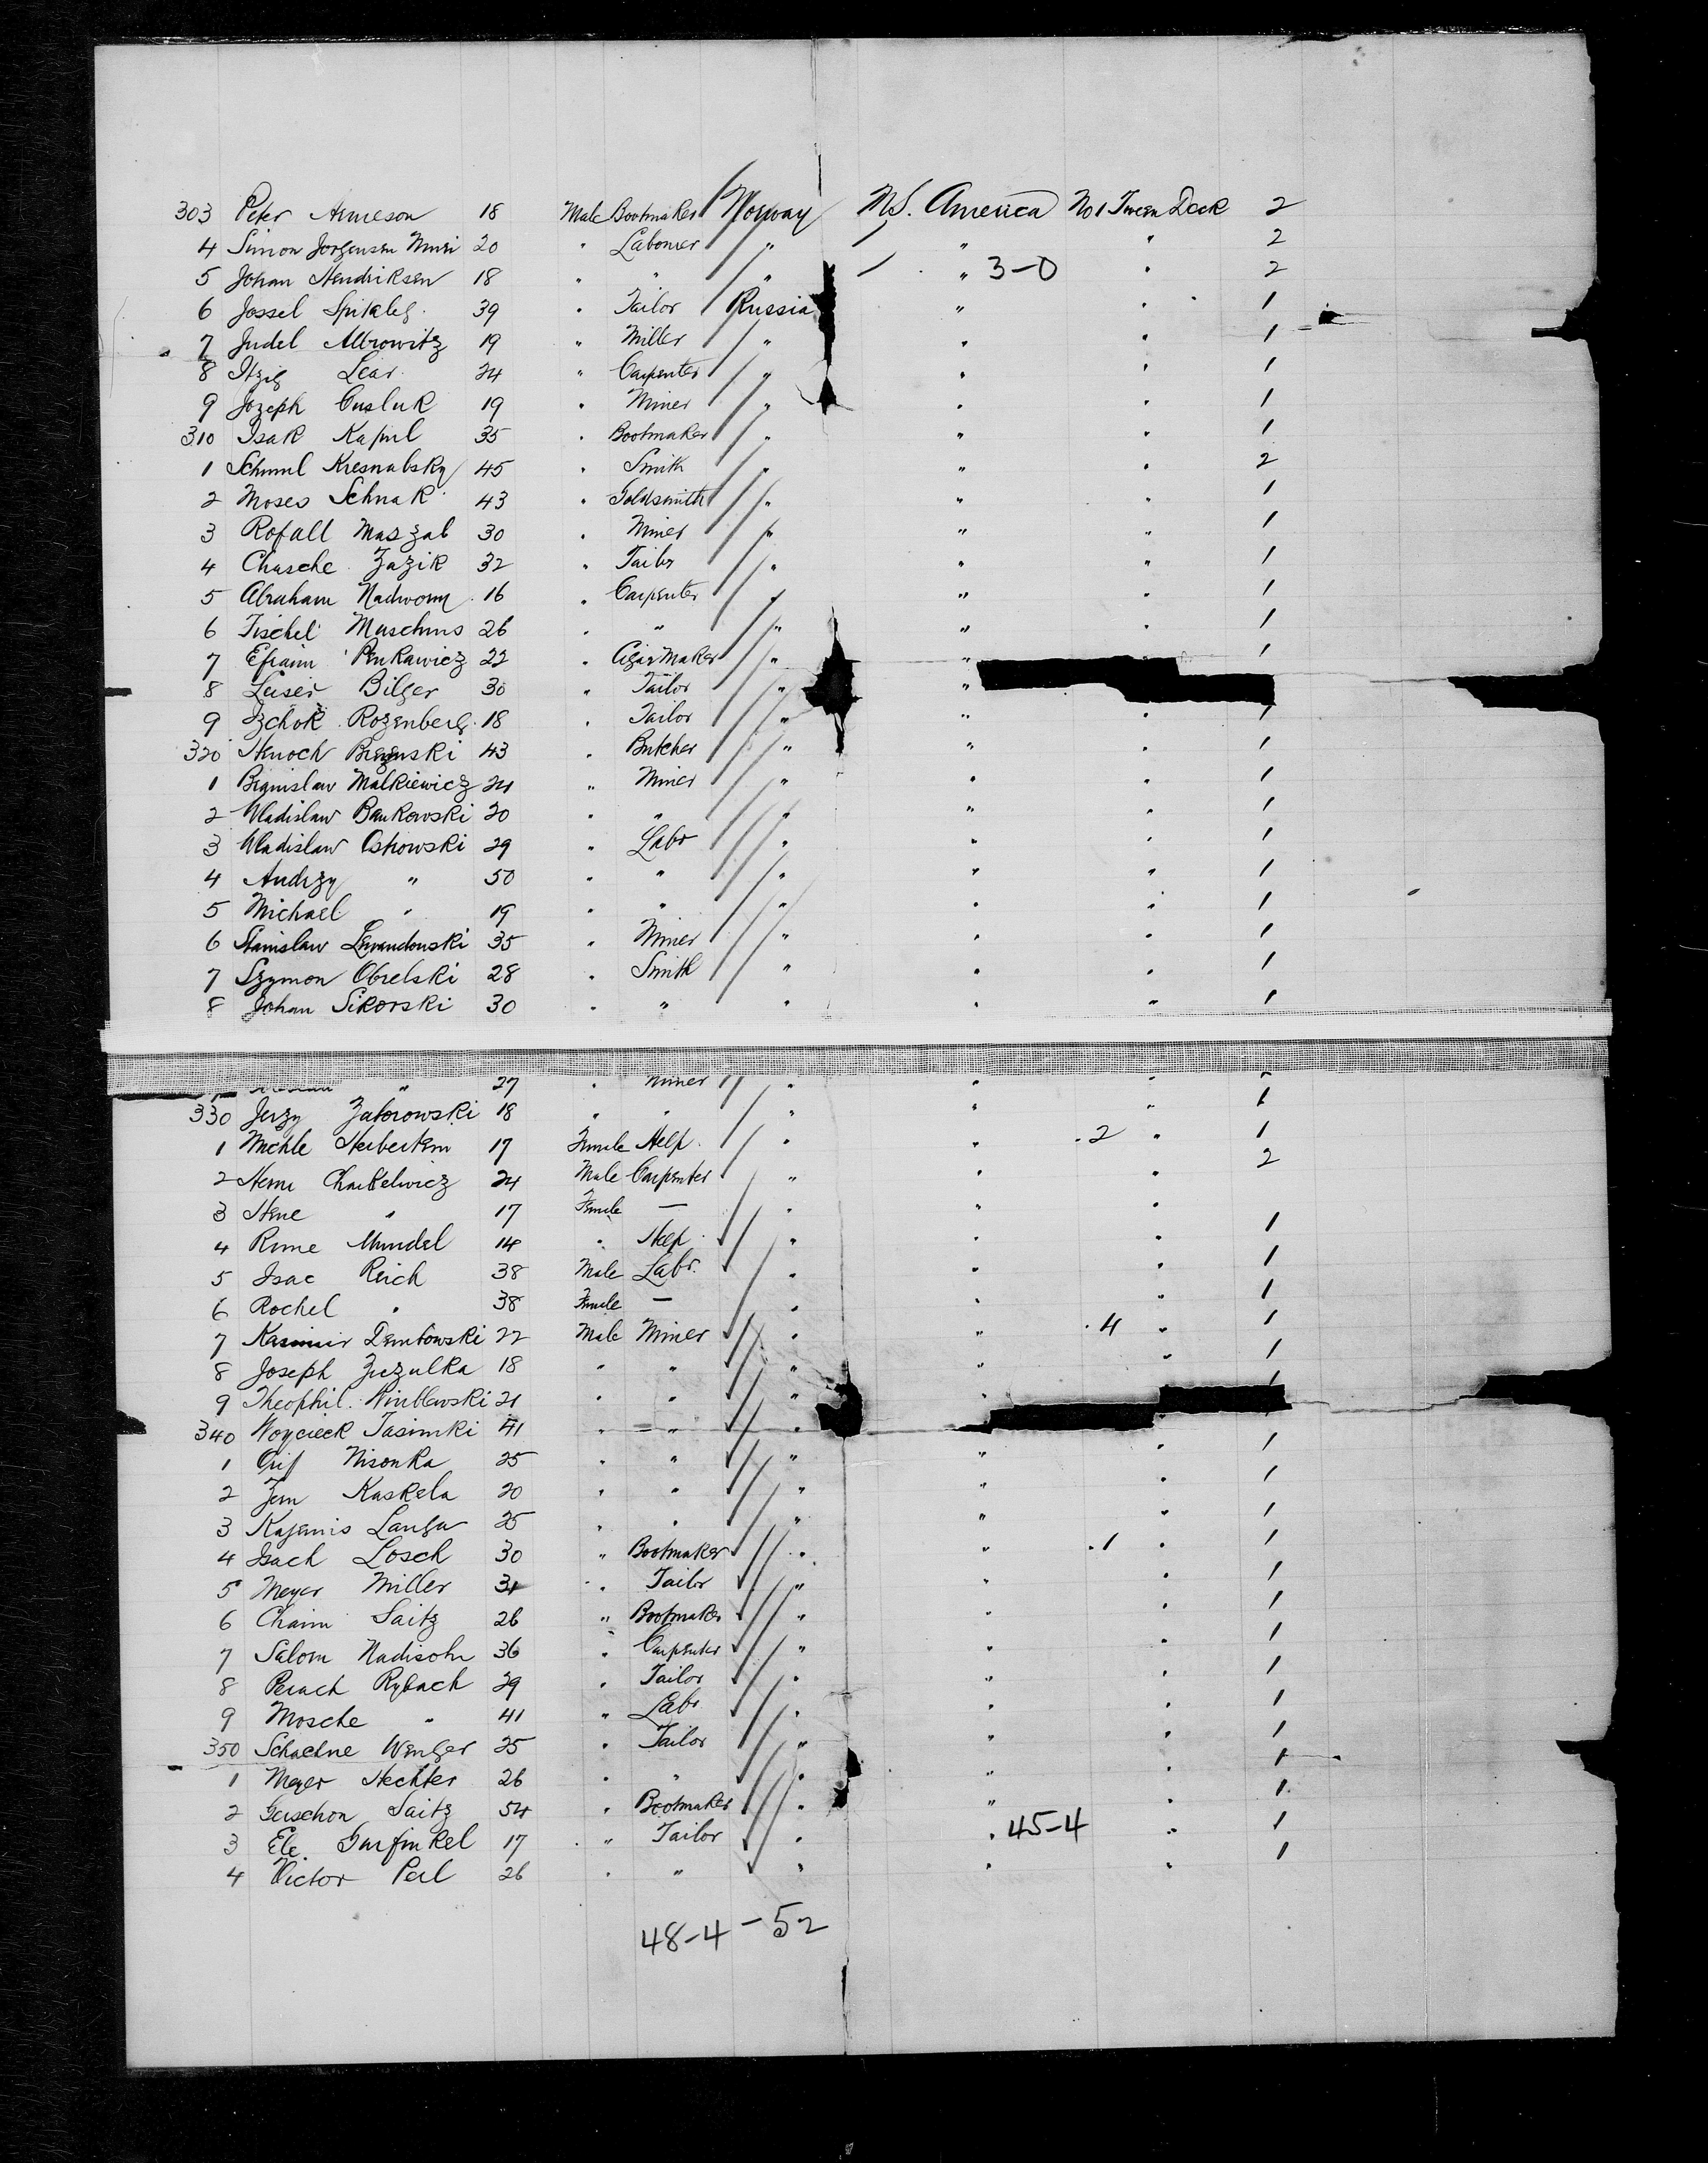 303 Peter Arneson 18 Male Bootmaker Norway N.S. America No 1 Tween Deck 2
4 Simon Jorgensen 20 " Labourer " " " 2
5 Johan Hendriksen 18 " " " " 3-0 " 2
6 Jossel 39 " Tailor Russia " " 1
7 Judel 19 " Miller " " " 1
8 Itzig Lear 24 " Carpenter " " " 1
9 Jozeph 19 " Miner " " " 1
310 Isak 35 " Bootmaker " " " 1
1 45 " Smith " " " 2
2 Moses Schnak 43 " Goldsmith " " " 1
3 Rofall Maszal 30 " Miner " " " 1
4 Chasche Zazik 32 " Tailor " " " 1
5 Abraham 16 " Carpenter " " " 1
6 26 " " " " " 1
7 Efraim Penkawicz 22 " Cigar Maker " " 1
8 Leiser Bilger 30 " Tailor " "
9 Rozenberg 18 " Tailor " " " 1
320 Henoch 43 " Butcher " " " 1
1 Malkiewicz 24 " Miner " " " 1
2 Wladislaw Bankowski 20 " " " " " 1
3 Wladislaw Ostrowski 29 " Labr " " " 1
4 Andrzy " 50 " " " " " 1
5 Michael " 19 " " " " " 1
6 Stanislaw Lewandowski 35 " Miner " " " 1
7 Szymon Obrelski 28 " Smith " " " 1
8 Johan Sikorski 30 " " " " " 1
" 27 " Miner " " "
330 Jerzy Zaborowski 18 " " " " " 1
1 17 Female Help " " 2 " 1
2 24 Male Carpenter " " " 2
3 Hene " 17 Female — " " "
4 Mindel 14 " Help " " " 1
5 Isac Reich 38 Male Labr. " " " 1
6 Rochel " 38 Female — " " " 1
7 Kasimir Dembowski 22 Male Miner " " 4 " 1
8 Joseph Zuzulka 18 " " " " " 1
9 Theophil 21 " " " "
340 41 " " "
1 Nisonka 25 " " " " " 1
2 Kaskela 20 " " " " " 1
3 25 " " " " " 1
4 Isach Losch 30 " Bootmaker " " 1 " 1
5 Meyer Miller 31 " Tailor " " " 1
6 Chaim Saitz 26 " Bootmaker " " " 1
7 Salom Nadisohn 36 " Carpenter " " " 1
8 Rybach 29 " Tailor " " " 1
9 Mosche " 41 " Labr. " " " 1
350 Schachne Wenger 25 " Tailor " " " 1
1 Meyer Hechter 26 " " " " " 1
2 Gerschon Saitz 54 " Bootmaker " " " 1
3 Ele Gurfinkel 17 " Tailor " " 45-4 " 1
4 Victor Perl 26 " " " " " 1
48-4-52